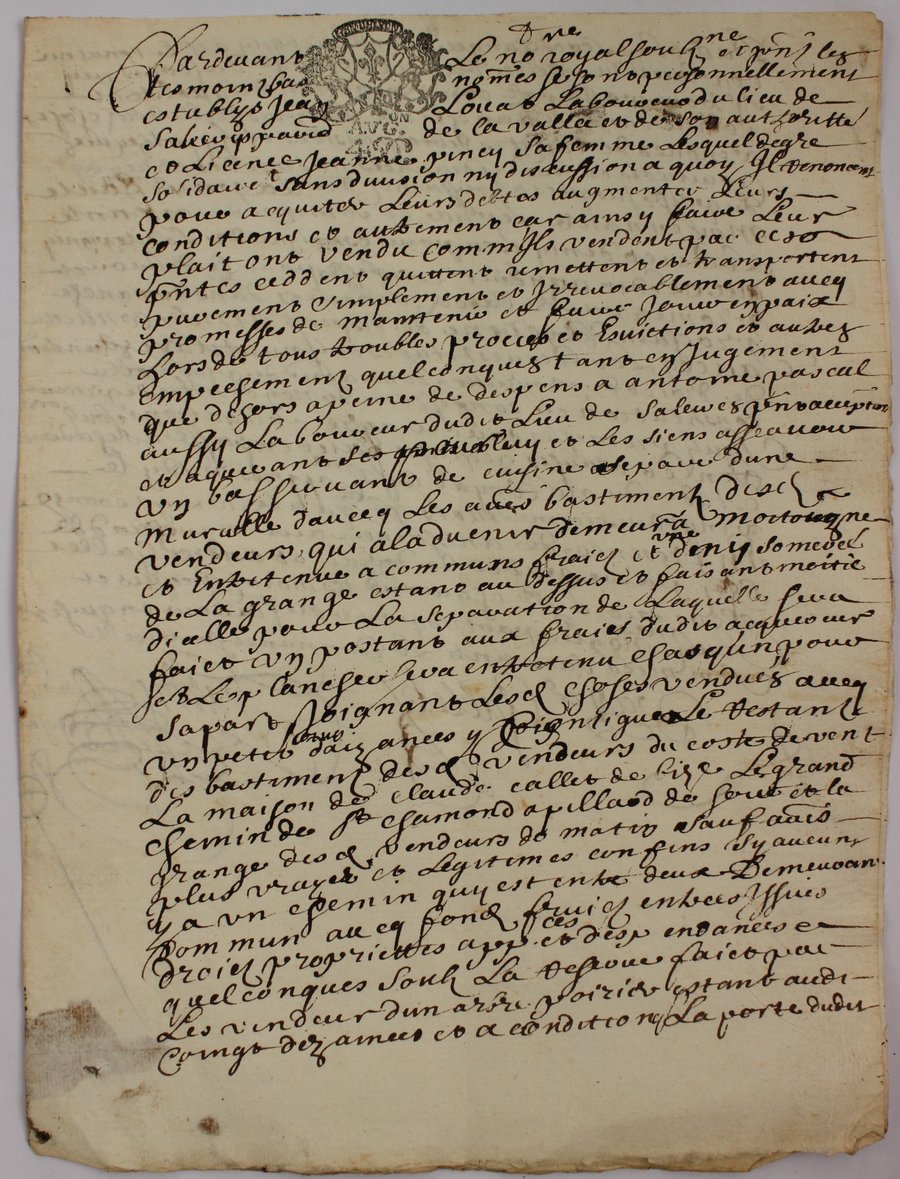 Pardevant Le no.re royal soub.ne et p̃nt les
tesmoins bas nomes se sont personnellement
establys Jean Louat Laboureur du lieu de
de la valla et de son authoritte
et Licence Jeanne pincy sa femme Lesquel de gre
solidairet sans division ny discussion a quoy Il Renoncent
pour acquiter Leurs debtes augmenter Leurs
conditions et autrement car ainsy faire Leur
plait ont vendu comm Ils vendent par ces
p̃ntes ceddent quittent remettent et transportent
purement simplement et Irrevocablement avecq
promesses de maintenir et faire Jouir en paix
hors de tous troubles proces et Esvictions et autres
empechement quelconques tant en Jugement
que dehors a peine de despens a antoine pascal
aussy Laboureur dudit Lieu de Saleves p̃nt acceptant
et aquerant pour luy et Les siens asseavoir
un bas servant de cuisine separe dune
muraille d'aucq Les aũes bastiment desd
vendeurs qui a ladvenir demeurera moctoyenne
et Entretenue a communs fraicts et
de La grange estant au dessus et faisant moitie
dicelle pour La separation de Laquelle sera
faict un postant aux fraies dudit acquereur
et Le plancher sera entretenu chasqun pour
sa part Joignant Lesd choses vendues avecq
un petit daizances y Le Restant
des bastiment desd vendeurs du coste de vent
La maison de claude callet de bize Le grand
chemin de st chamond a pillard de soir et la
grange desd vendeurs de matin sauf aũes
plus vrayes et Legitimes confins sy aucuns
y a un chemin quy est entre deux Demeurant
Commun avecq fond fruict entrees Issues
droict proprietes app.ces et despendances
quelconques soub La Reserve faict par
Les vendeur dun arbre poirier estant audt
Coingt dez aincet et a condition La porte dudit